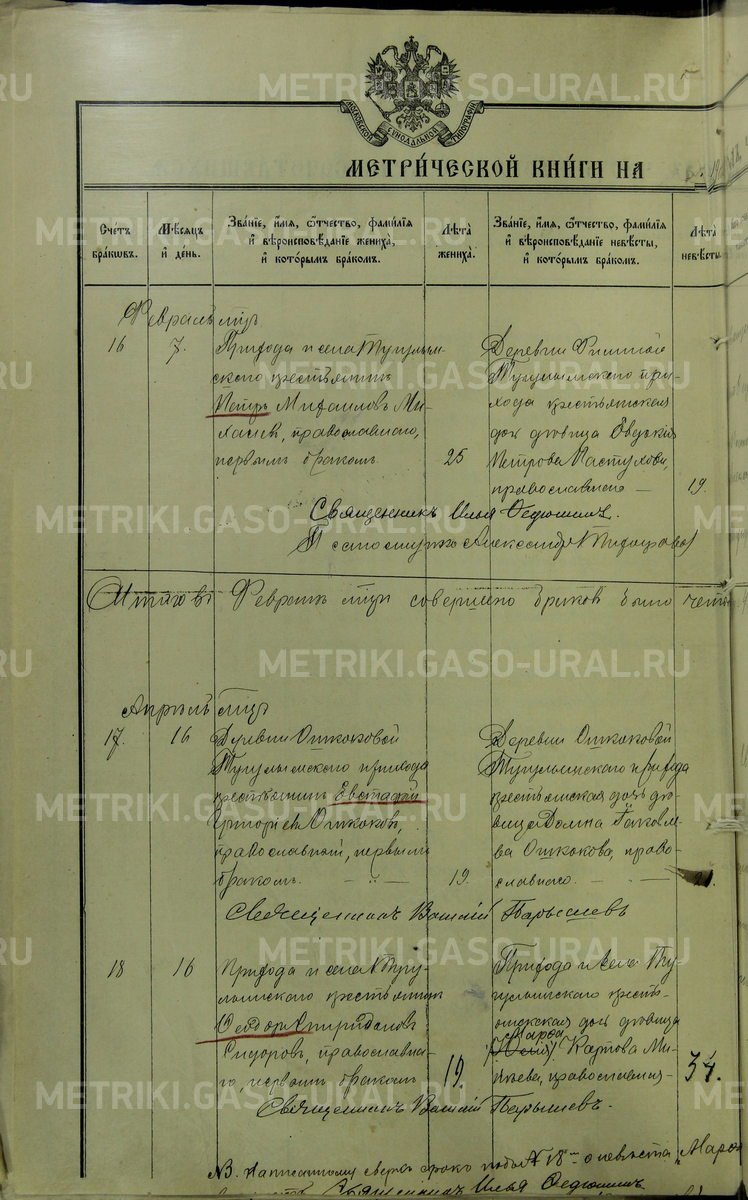 МОСКОВСКОЙ СѴНОДАЛЬНОЙ ТИПОГРАФІИ
МЕТРИ́ЧЕСКОЙ КНИ́ГИ НА
Счетъ бракѡвъ.
Мѣсяцъ и день.
Зва́нїе, и́мя, ѻ҆тчество, фами́лїя и вѣроисповѣ́данїе жениха̀, и кото́рымъ бра́комъ.
Лѣта̀ жениха̀.
Зва́нїе, и́мя, ѻ҆тчество, фами́лїя и вѣроисповѣ́данїе невѣ́сты, и кото́рымъ бра́комъ.
Лѣта̀ невѣ́сты
Февраль мцъ
16
7.
Прихода и села Тугулым-
скаго крестьянинъ
Петръ Михаиловъ Ми-
православнаго,
первымъ бракомъ
25
Деревни
Тугулымскаго при-
хода крестьянская
дочь дѣвица Евдокія
Петрова Пастухова,
православнаго —
19.
Священникъ Илья Ѳедюшинъ.
Псаломщикъ Александръ
Итого въ Февралѣ мцѣ совершено браковъ было
Апрѣль мцъ
17.
16
Деревни Ошкоковой
Тугулымскаго прихода
крестьянинъ Евстафій
Григорьевъ Ошкоковъ,
православной, первымъ
бракомъ.
19.
Деревни Ошкоковой
Тугулымскаго прихода
крестьянская дочь дѣ-
вица Домна Яковле-
ва Ошкокова, право-
славнаго.
Священникъ Василій Барышевъ
18
16
Прихода и села Тугу-
лымскаго крестьянинъ
Ѳеодоръ Спиридоновъ
Сидоровъ, православна-
го, первымъ бракомъ
19.
Прихода и села Ту-
гулымскаго кресть-
янская дочь дѣвица
Марѳа
Карпова Ми-
православная
34.
Священникъ Василій Барышевъ.
NВ. Написанному сверхъ строки подъ № 18 о невѣстѣ „Марѳа
Священникъ Илья Ѳедюшинъ
METRIKI.GASO-URAL.RU